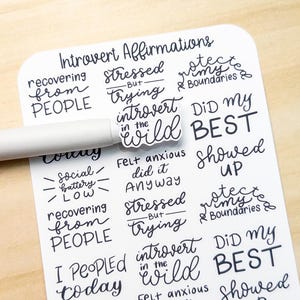 Introvert Affirmations
recovering
from
PEOPLE
stressed
BUT
trying
otect
my
Boundaries
introvert
in the
wild
DiD my
BEST
today
Felt anxious
did it
Anyway
Showed
UP
social
battery
LOW
recovering
from
PEOPLE
stressed
BUT
trying
otect
my
Boundaries
I PEOPLED
today
introvert
in the
wild
DiD my
BEST
Felt anxious
Showed